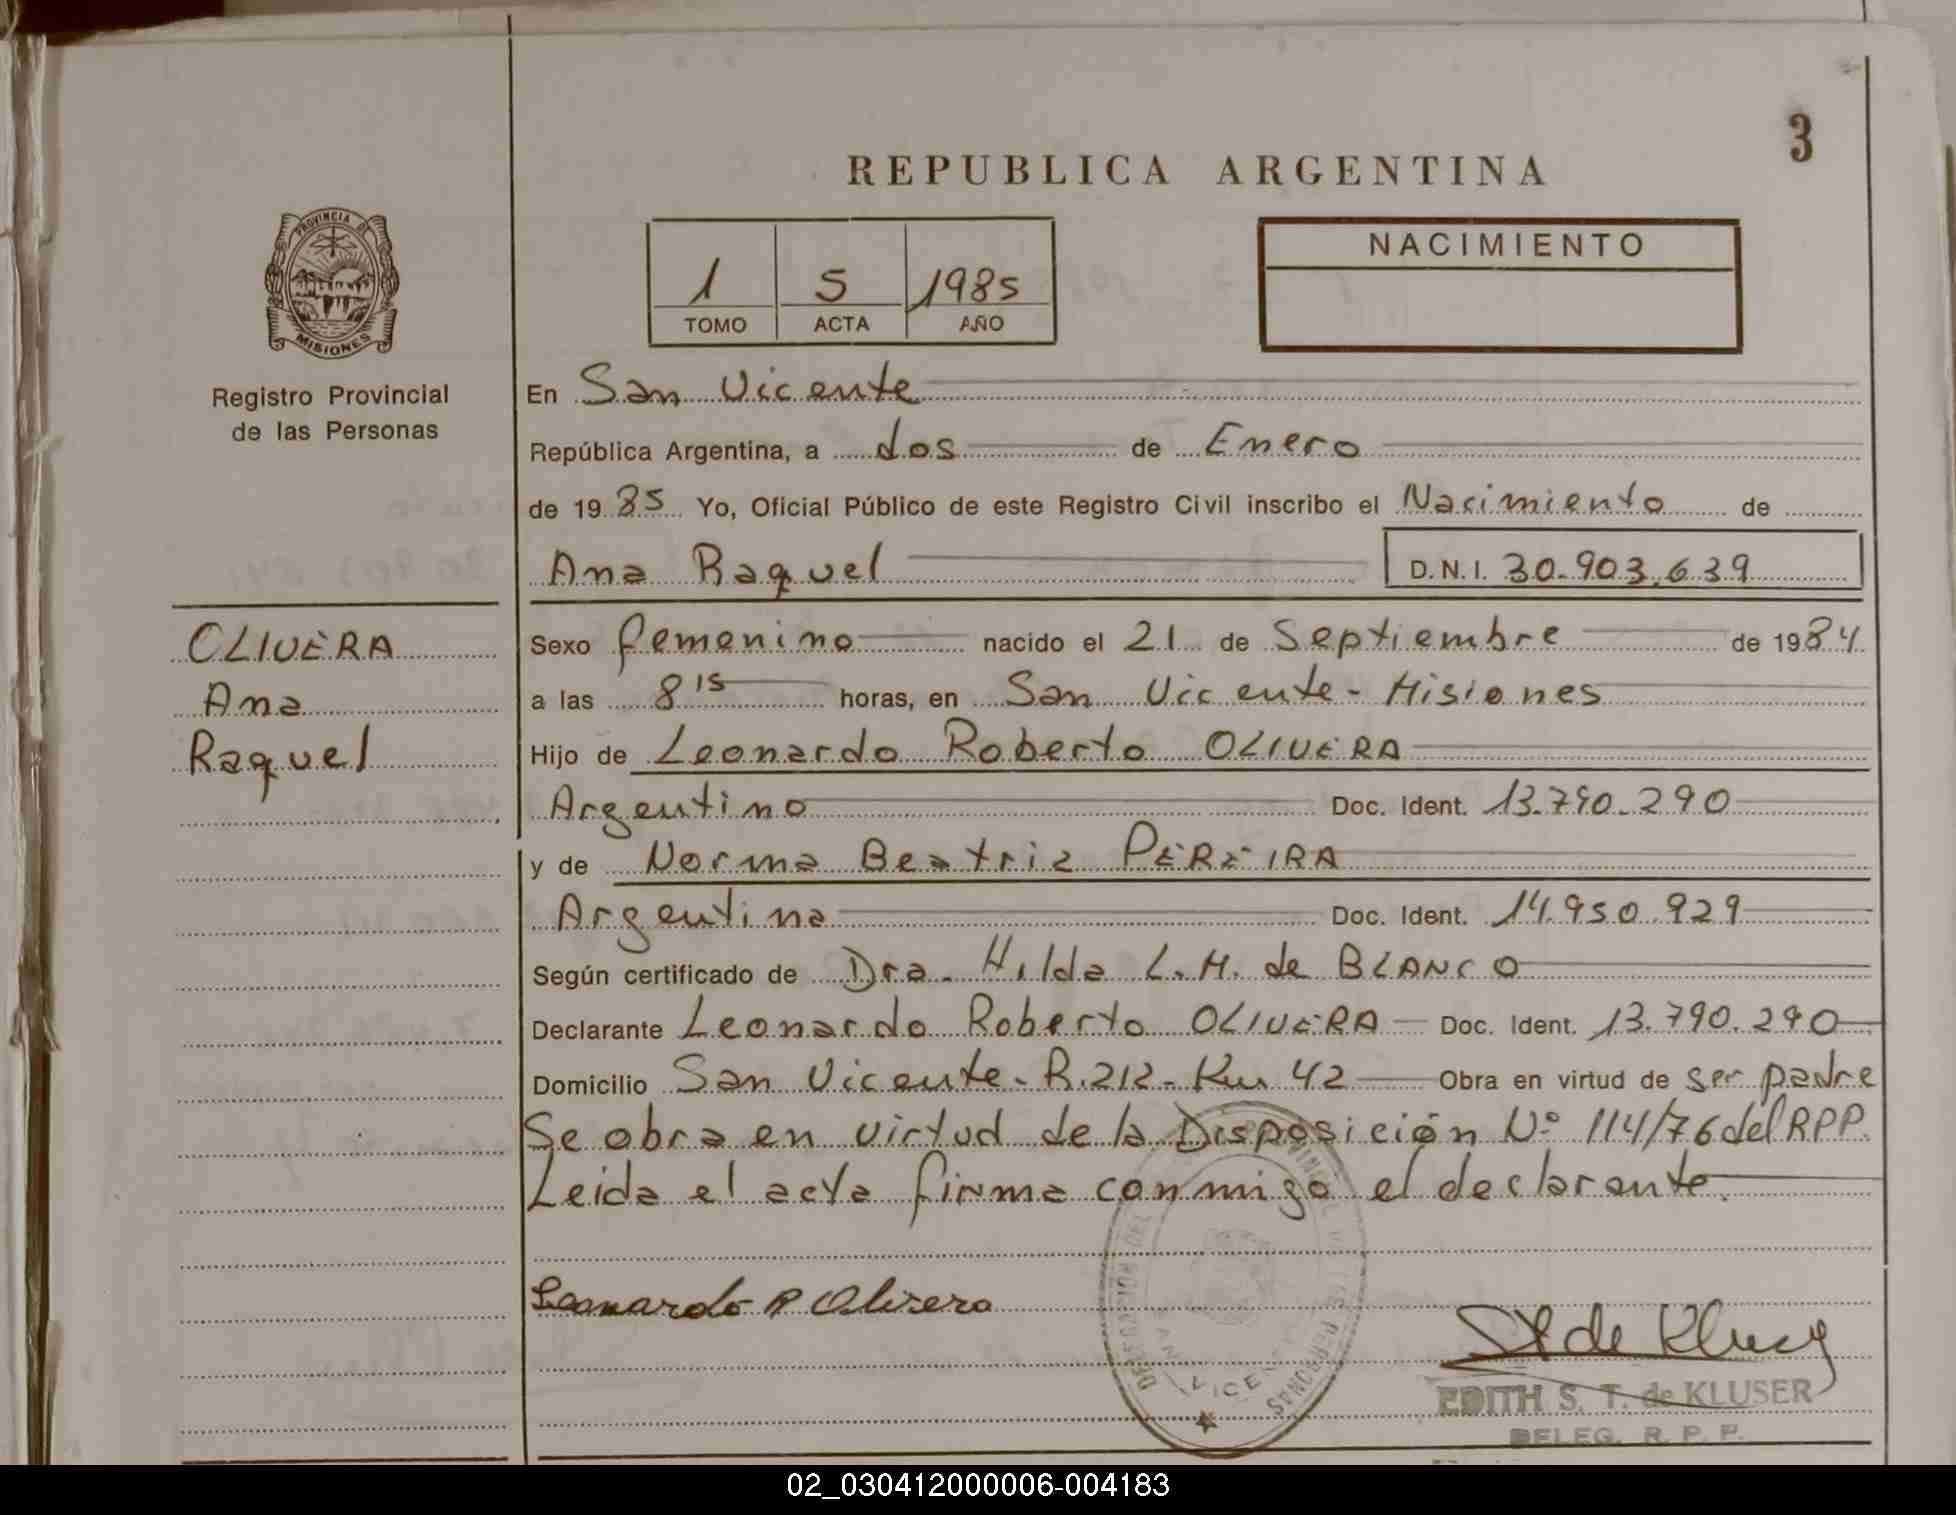 3
REPUBLICA ARGENTINA
PROVINCIA DE
MISIONES
Registro Provincial
de las Personas
1 5 1985
TOMO ACTA AÑO
NACIMIENTO
En San Vicente
República Argentina, a dos de Enero
de 1985 Yo, Oficial Público de este Registro Civil inscribo el Nacimiento de
Ana Raquel D.N.I. 30.903.639
OLIVERA
Ana
Raquel
Sexo femenino nacido el 21 de Septiembre de 1984
a las 8 15 horas, en San Vicente - Misiones
Hijo de Leonardo Roberto OLIVERA
Argentino Doc. Ident. 13.790.290
y de Norma Beatriz PEREIRA
Argentina Doc. Ident. 14.950.929
Según certificado de Dra. Hilda L. M. de BLANCO
Declarante Leonardo Roberto OLIVERA Doc. Ident. 13.790.290
Domicilio San Vicente - R.212 - Km 42 Obra en virtud de ser padre
Se obra en virtud de la Disposición Nº 114/76 del RPP.
Leida el acta firma conmigo el declarante.
Leonardo R Olivera
DELEGACION DEL PROVINCIAL DE LAS PERSONAS
SAN VICENTE
St de Kluser
EDITH S. T. de KLUSER
DELEG. R. P. P.
02_030412000006-004183